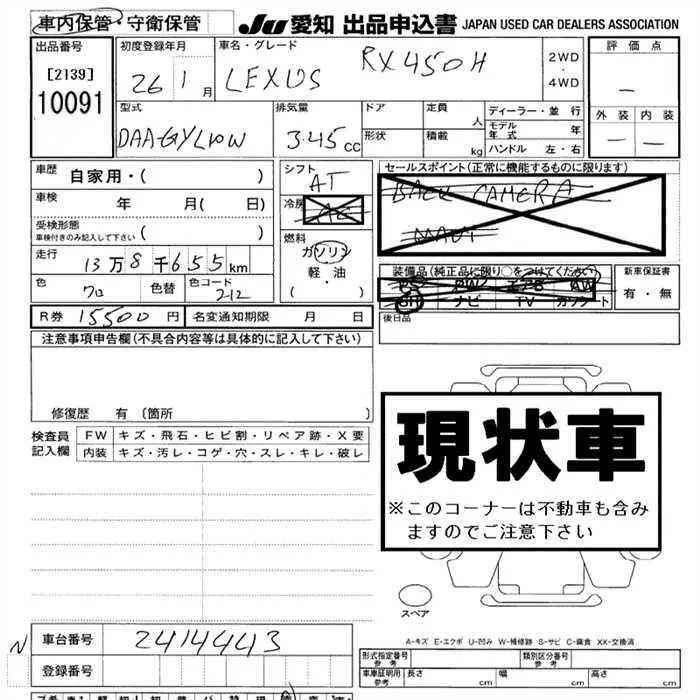 車内保管・守衛保管
JU 愛知 出品申込書 JAPAN USED CAR DEALERS ASSOCIATION
出品番号
[2139]
10091
初度登録年月
26 1月
車名・グレード
LEXUS RX450H
2WD
・
4WD
評価点
―
外装 内装
― ―
型式
DAA-GYL10W
排気量
3.45 CC
ドア
形状
定員 人
積載 kg
ディーラー・並行
モデル年式 年
ハンドル 左・右
車歴 自家用・( )
車検 年 月( 日)
受検形態
車検付きのみ記入して下さい ( )
走行 13万8千655km
色 クロ 色替 色コード 212
シフト
AT
冷房
AC
燃料
ガソリン
軽・油
( )
セールスポイント(正常に機能するものに限ります)
BACK CAMERA
NAVI
装備品(純正品に限り○をつけてください)
PS PW エアB AW
SR ナビ TV カワシート
新車保証書
有・無
R券 15500円 名変通知期限 月 日
後日品
注意事項申告欄(不具合内容等は具体的に記入して下さい)
修復歴 有 〔箇所 〕
検査員記入欄
FW キズ・飛石・ヒビ割・リペア跡・X要
内装 キズ・汚レ・コゲ・穴・スレ・キレ・破レ
現状車
※このコーナーは不動車も含み
ますのでご注意下さい
スペア
A-キズ E-エクボ U-凹み W-補修跡 S-サビ C-腐食 XX-交換済
N 車台番号 2414443
登録番号
形式指定番号 参考
類別区分番号 参考
車庫証明用 参考 長さ 幅 高さ